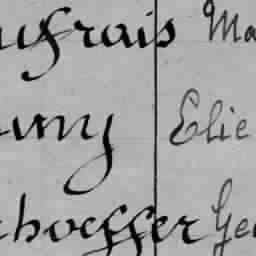 ufrais Ma
uny Elie
choeffer Geo